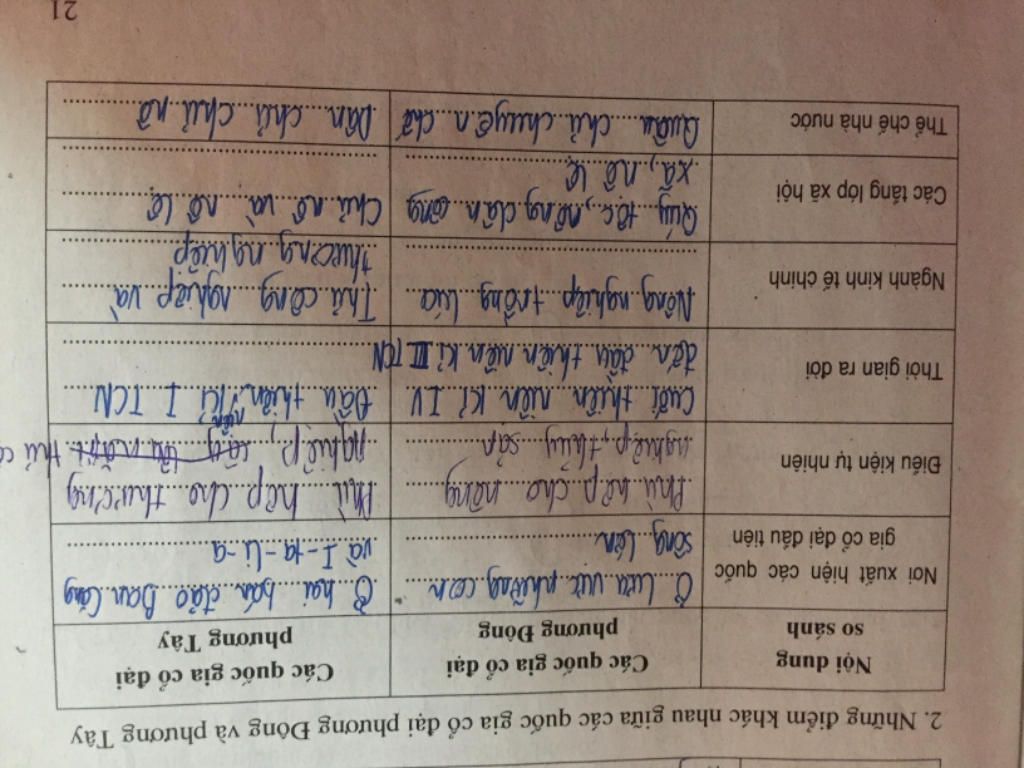 2. Những điểm khác nhau giữa các quốc gia cổ đại phương Đông và phương Tây
Nội dung
so sánh
Các quốc gia cổ đại
phương Đông
Các quốc gia cổ đại
phương Tây
Nơi xuất hiện các quốc
gia cổ đại đầu tiên
Ở lưu vực những con
sông lớn
Ở hai bán đảo Ban Căng
và I-ta-li-a
Điều kiện tự nhiên
Phù hợp cho nông
nghiệp, thủy sản
Phù hợp cho thương
nghiệp, thủ c
Thời gian ra đời
Cuối thiên niên kỉ IV
đến đầu thiên niên kỉ III TCN
Đầu thiên niên kỉ I TCN
Ngành kinh tế chính
Nông nghiệp trồng lúa
Thủ công nghiệp và
thương nghiệp
Các tầng lớp xã hội
Qúy tộc, nông dân công
xã, nô lệ
Chủ nô và nô lệ
Thể chế nhà nước
Quân chủ chuyên chế
Dân chủ chủ nô
21